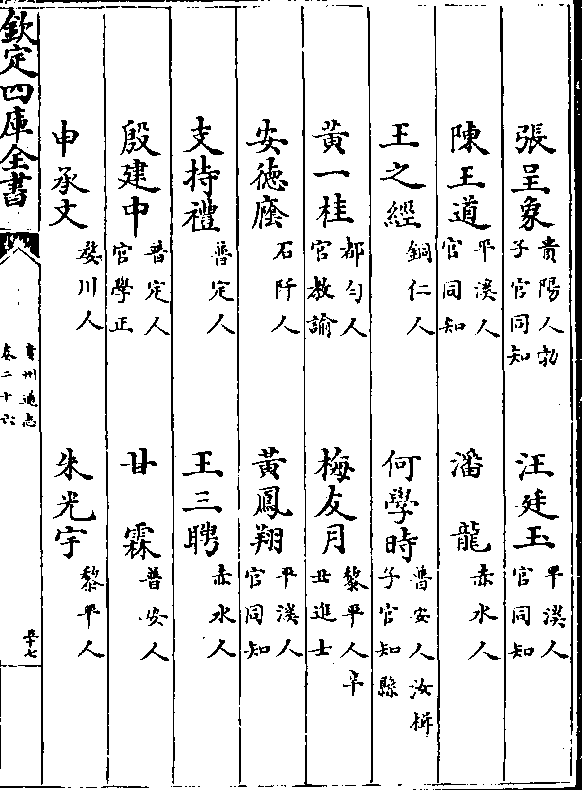 張呈象 貴陽人勃子官同知 汪廷玉 平溪人官同知
陳王道 平溪人官同知 潘龍 赤水人
王之經 銅仁人 何學時 普安人汝楫子官知縣
黃一桂 都勻人官教諭 梅友月 黎平人辛丑進士
安德䕃 石阡人 黃鳳翔 平溪人官同知
支持禮 普定人 王三聘 赤水人
殷建中 普定人官學正 甘霖 普安人
申承文 婺川人 朱光宇 黎平人
欽定四庫全書
貴州通志
卷二十六
五十七